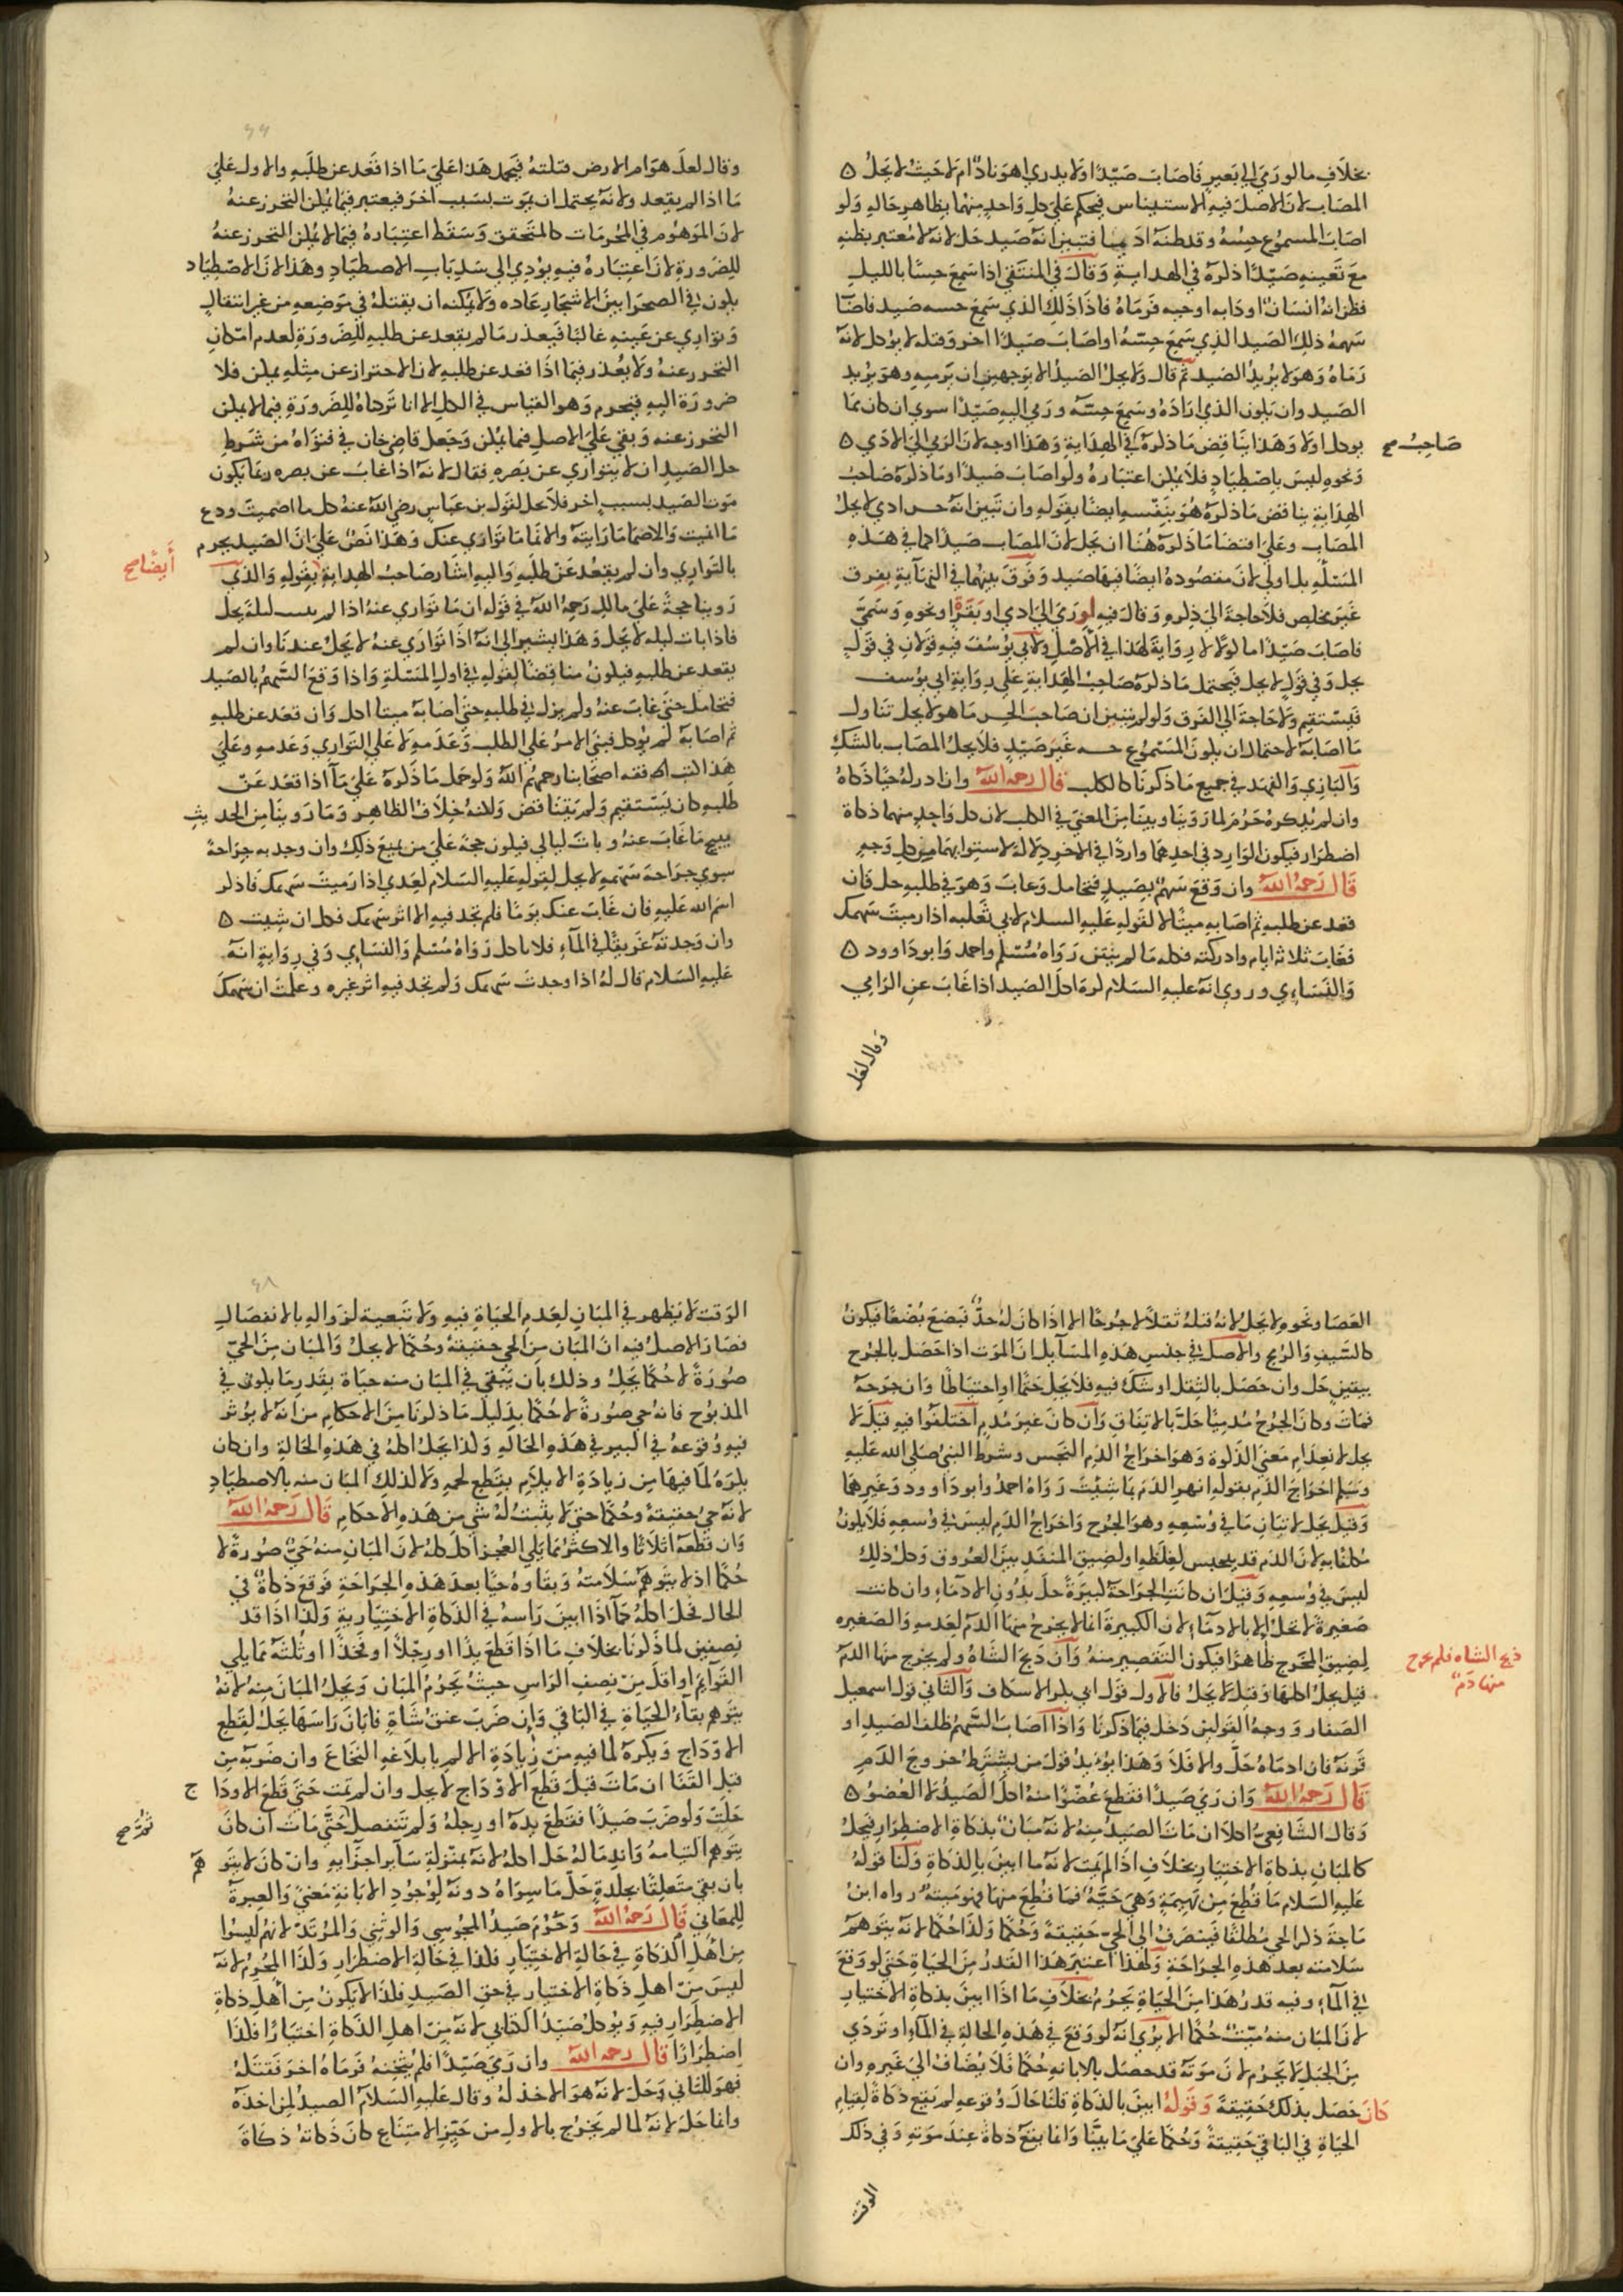 بخلاف ما لو رمي الي بعير فاصاب صيدا ولا يدري اهو ناد ام لا حيث لا يحل
المصاب لان الاصل فيه الاستيناس فيحكم علي كل واحد منهما بظاهر حاله ولو
اصاب المسموع حسه وقد ظنه ادميا فتبين انه صيد حل لانه لا معتبر بظنه
مع تعينه صيدا ذكره في الهداية وقال في المنتقي اذا سمع حسا بالليل
فظن انه انسان او دابه او حيه فرماه فاذا ذلك الذي سمع حسه صيد فاصاب
سهمه ذلك الصيد الذي سمع حسه او اصاب صيدا اخر وقتله لا يوكل لانه
رماه وهو لا يريد الصيد ثم قال ولا يحل الصيد الا بوجهين ان يرميه وهو يريد
الصيد وان يكون الذي اراده وسمع حسه ورمي اليه صيدا سوي ان كان مما
يوكل او لا وهذا يناقض ما ذكره في الهداية وهذا اوجه لان الرمي الي الادمي
صاحب صح
ونحوه ليس باصطياد فلا يمكن اعتباره ولو اصاب صيدا وما ذكره صاحب
الهداية يناقض ما ذكره هو بنفسه ايضا بقوله وان تبين انه حس ادمي لا يحل
المصاب وعلي اقتضا ما ذكره هنا ان يحل لان المصاب صيد كما في هذه
المسئله بل اولي لان مقصوده ايضا فيها صيد وفرق بينهما في النهاية بفرق
غير مخلص فلا حاجة الي ذكره وقال فيه لو رمي الي ادمي او بقرة او نحوه وسمي
فاصاب صيدا ماكولا لا رواية لهذا في الاصل ولابي يوسف فيه قولان في قول
يحل وفي قول لا يحل فيحتمل ما ذكره صاحب الهداية علي رواية ابي يوسف
فيستقيم ولا حاجة الي الفرق ولو لم يتبين ان صاحب الحس ما هو لا يحل تناول
ما اصابه لاحتمال ان يكون المسموع حسه غير صيد فلا يحل المصاب بالشك
والبازي والفهد في جميع ما ذكرنا كالكلب قال رحمه الله وان ادركه حيا ذكاه
وان لم يذكره حرم لما روينا وبينا من المعني في الكلب لان كل واحد منهما ذكاة
اضطرار فيكون الوارد في احدهما واردا في الاخر دلالة لاستوايهما من كل وجه
قال رحمه الله وان وقع سهم بصيد فتحامل وغاب وهو في طلبه حل فان
قعد عن طلبه ثم اصابه ميتا لا لقوله عليه السلام لابي ثعلبه اذا رميت سهمك
فغاب ثلاثة ايام وادركته فكله ما لم ينتن رواه مسلم واحمد وابو داوود
والنساءي وروي انه عليه السلام كره اكل الصيد اذا غاب عن الرامي
وقال لعل
وقال لعل هوام الارض قتلته فيحمل هذا علي ما اذا قعد عن طلبه والاول علي
ما اذا لم يقعد ولانه يحتمل ان يموت بسبب اخر فيعتبر فيما يمكن التحرز عنه
لان الموهوم في المحرمات كالمتحقق وسقط اعتباره فيما لا يمكن التحرز عنه
للضرورة لان اعتباره فيه يودي الي سد باب الاصطياد وهذا لان الاصطياد
يكون في الصحرا بين الاشجار عاده ولا يمكنه ان يقتله في موضعه من غير انتقال
وتواري عن عينه غالبا فيعذر ما لم يقعد عن طلبه للضرورة لعدم امكان
التحرز عنه ولا يعذر فيما اذا قعد عن طلبه لان الاحتراز عن مثله يمكن فلا
ضرورة اليه فيحرم وهو القياس في الكل الا انا تركناه للضرورة فيما لا يمكن
التحرز عنه وبقي علي الاصل فيما يمكن وجعل قاضي خان في فتواه من شرط
حل الصيد ان لا يتواري عن بصره فقال لانه اذا غاب عن بصره ربما يكون
موت الصيد بسبب اخر فلا يحل لقول بن عباس رضي الله عنه كل ما اصميت ودع
ما انميت والاصما ما رايته والانما ما تواري عنك وهذا نص علي ان الصيد يحرم
بالتواري وان لم يقعد عن طلبه واليه اشار صاحب الهداية بقوله والذي
أيضا صح
روينا حجة علي مالك رحمه الله في قوله ان ما تواري عنه اذا لم يبت ليلة يحل
فاذا بات ليله لا يحل وهذا يشير الي انه اذا تواري عنه لا يحل عندنا وان لم
يقعد عن طلبه فيكون مناقضا لقوله في اول المسئلة واذا وقع السهم بالصيد
فتحامل حتي غاب عنه ولم يزل في طلبه حتي اصابه ميتا اكل وان قعد عن طلبه
ثم اصابه لم يوكل فبني الامر علي الطلب وعدمه لا علي التواري وعدمه وعلي
هذا كتب فقه اصحابنا رحمهم الله ولو حمل ما ذكره علي ما اذا قعد عن
طلبه كان يستقيم ولم يتناقض ولكنه خلاف الظاهر وما روينا من الحديث
يبيح ما غاب عنه وبات ليالي فيكون حجة علي من يمنع ذلك وان وجد به جراحة
سوي جراحة سهمه لا يحل لقوله عليه السلام لعدي اذا رميت سهمك فاذكر
اسم الله عليه فان غاب عنك يوما فلم تجد فيه الا اثر سهمك فكل ان شيت
وان وجدته غريقا في الماء فلا تاكل رواه مسلم والنساي وفي رواية انه
عليه السلام قال له اذا وجدت سهمك ولم تجد فيه اثر غيره وعلمت ان سهمك
العصا ونحوه لا يحل لانه قتله ثقلا لا جرحا الا اذا كان له حد يبضع بضعا فيكون
كالسيف والرمح والاصل في جنس هذه المسايل ان الموت اذا حصل بالجرح
بيقين حل وان حصل بالثقل او شك فيه فلا يحل حتما او احتياطا وان جرحه
فمات وكان الجرح مدميا حل بالاتفاق وان كان غير مدم اختلفوا فيه قيل لا
يحل لانعدام معني الذكوة وهو اخراج الدم النجس وشرط النبي صلي الله عليه
وسلم اخراج الدم بقوله انهر الدم بما شيت رواه احمد وابو داوود وغيرهما
وقيل يحل لاتيان ما في وسعه وهو الجرح واخراج الدم ليس في وسعه فلا يكون
مكلفا به لان الدم قد ينحبس لغلظه او لضيق المنفذ بين العروق وكل ذلك
ليس في وسعه وقيل ان كانت الجراحة كبيرة حل بدون الادماء وان كانت
صغيرة لا تحل الا بالادماء لان الكبيرة انما لا يخرج منها الدم لعدمه والصغيره
لضيق المخرج ظاهرا فيكون التقصير منه وان ذبح الشاة ولم يخرج منها الدم
ذبح الشاه فلم يخرج
منها دم
قيل يحل اكلها وقيل لا يحل فالاول قول ابي بكر الاسكاف والثاني قول اسمعيل
الصفار ووجه القولين دخل فيما ذكرنا واذا اصاب السهم ظلف الصيد او
قرنه فان ادماه حل والا فلا وهذا يويد قول من يشترط خروج الدم
قال رحمه الله وان رمي صيدا فقطع عضوا منه اكل الصيد لا العضو
وقال الشافعي اكلا ان مات الصيد منه لانه مبان بذكاة الاضطرار فيحل
كالمبان بذكاة الاختيار بخلاف اذا لم يمت لانه ما ابين بالذكاة ولنا قوله
عليه السلام ما قطع من بهيمة وهي حية فما قطع منها فهو ميتة رواه ابن
ماجة ذكر الحي مطلقا فينصرف الي الحي حقيقة وحكما ولذا حكما لانه يتوهم
سلامته بعد هذه الجراحة ولهذا اعتبر هذا القدر من الحياة حتي لو وقع
في الماء وفيه قدر هذا من الحياة يحرم بخلاف ما اذا ابين بذكاة الاختيار
لان المبان منه ميت حكما الا يري انه لو وقع في هذه الحالة في الماء او تردي
من الجبل لا يحرم لان موته قد حصل بالابانه حكما فلا يضاف الي غيره وان
كان حصل بذلك حقيقة وقوله ابين بالذكاة قلنا حال وقوعه لم يقع ذكاة لقيام
الحياة في الباقي حقيقة وحكما علي ما بينا وانما يقع ذكاة عند موته وفي ذلك
الوقت
الوقت لا يظهر في المبان لعدم الحياة فيه ولا تبعية لزواله بالانفصال
فصار الاصل فيه ان المبان من الحي حقيقة وحكما لا يحل والمبان من الحي
صورة لا حكما يحل وذلك بان يبقي في المبان منه حياة بقدر ما يكون في
المذبوح فانه حي صورة لا حكما بدليل ما ذكرنا من الاحكام من انه لا يوثر
فيه وقوعه في البير في هذه الحاله ولذا يحل اكله في هذه الحالة وان كان
يكره لما فيها من زيادة الايلام بقطع لحمه ولا كذلك المبان منه بالاصطياد
لانه حي حقيقة وحكما حتي لا يثبت له شي من هذه الاحكام قال رحمه الله
وان قطعه اثلاثا والاكثر مما يلي العجز اكل كله لان المبان منه حي صورة لا
حكما اذ لا يتوهم سلامته وبقاوه حيا بعد هذه الجراحة فوقع ذكاة في
الحال فحل اكله كما اذا ابين راسه في الذكاة الاختيارية ولذا اذا قد
نصفين لما ذكرنا بخلاف ما اذا قطع يدا او رجلا او فخذا او ثلثه مما يلي
القوايم او اقل من نصف الراس حيث يحرم المبان ويحل المبان منه لانه
يتوهم بقاء الحياة في الباقي وان ضرب عنق شاة فابان راسها يحل لقطع
الاوداج ويكره لما فيه من زيادة الالم بابلاغه النخاع وان ضربه من
قبل القفا ان مات قبل قطع الاوداج لا يحل وان لم يمت حتي قطع الاوداج
حلت ولو ضرب صيدا فقطع يده او رجله ولم تنفصل حتي مات ان كان
ثم صح
يتوهم التيامه واندماله حل اكله لانه بمنزلة ساير اجزايه وان كان لا يتوهم
بان بقي متعلقا بجلدة حل ما سواه دونه لوجود الابانة معني والعبرة
للمعاني قال رحمه الله وحرم صيد المجوسي والوثني والمرتد لانهم ليسوا
من اهل الذكاة في حالة الاختيار فكذا في حالة الاضطرار ولذا المحرم لانه
ليس من اهل ذكاة الاختيار في حق الصيد فكذا لا يكون من اهل ذكاة
الاضطرار فيه ويوكل صيد الكتابي لانه من اهل الذكاة اختيارا فكذا
اضطرارا قال رحمه الله وان رمي صيدا فلم يثخنه فرماه اخر فقتله
فهو للثاني وحل لانه هو الاخذ له وقال عليه السلام الصيد لمن اخذه
وانما حل لانه لما لم يخرج بالاول من حيز الامتناع كان ذكاته ذكاة